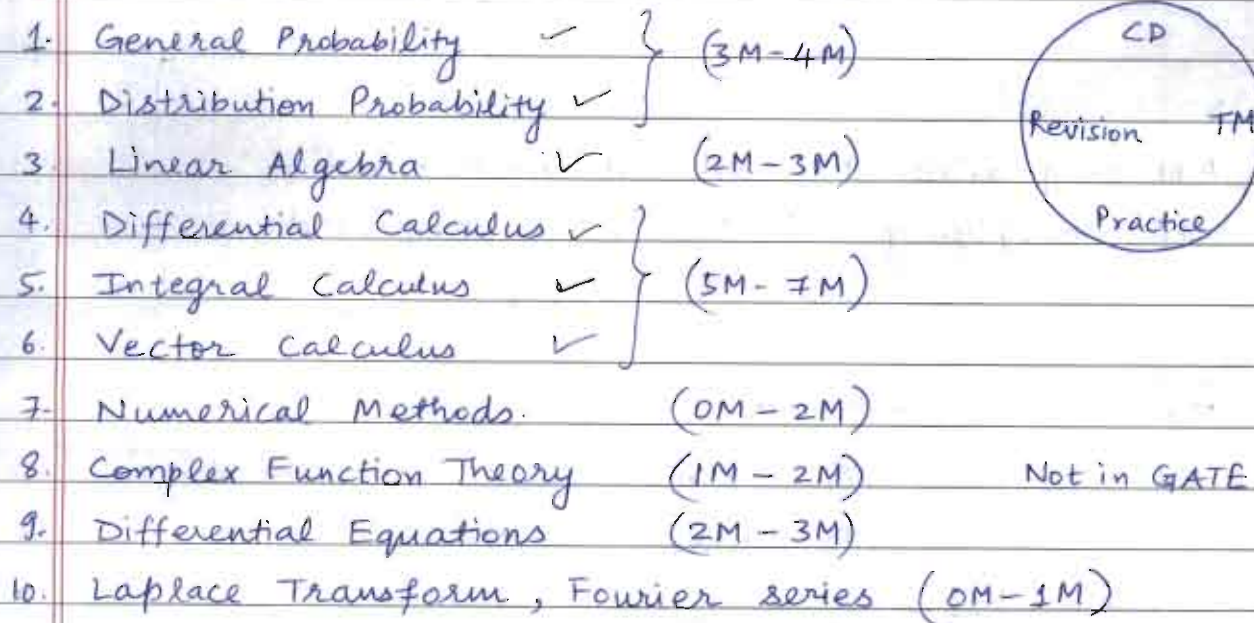 1. General Probability ✓
2. Distribution Probability ✓ } (3M-4M)
3 Linear Algebra ✓ (2M-3M)
4. Differential Calculus ✓
5. Integral Calculus ✓ } (5M-7M)
6. Vector Calculus ✓
7. Numerical Methods. (0M-2M)
8. Complex Function Theory (1M-2M) Not in GATE
9. Differential Equations (2M-3M)
10. Laplace Transform, Fourier series (0M-1M)
CD
Revision TM
Practice